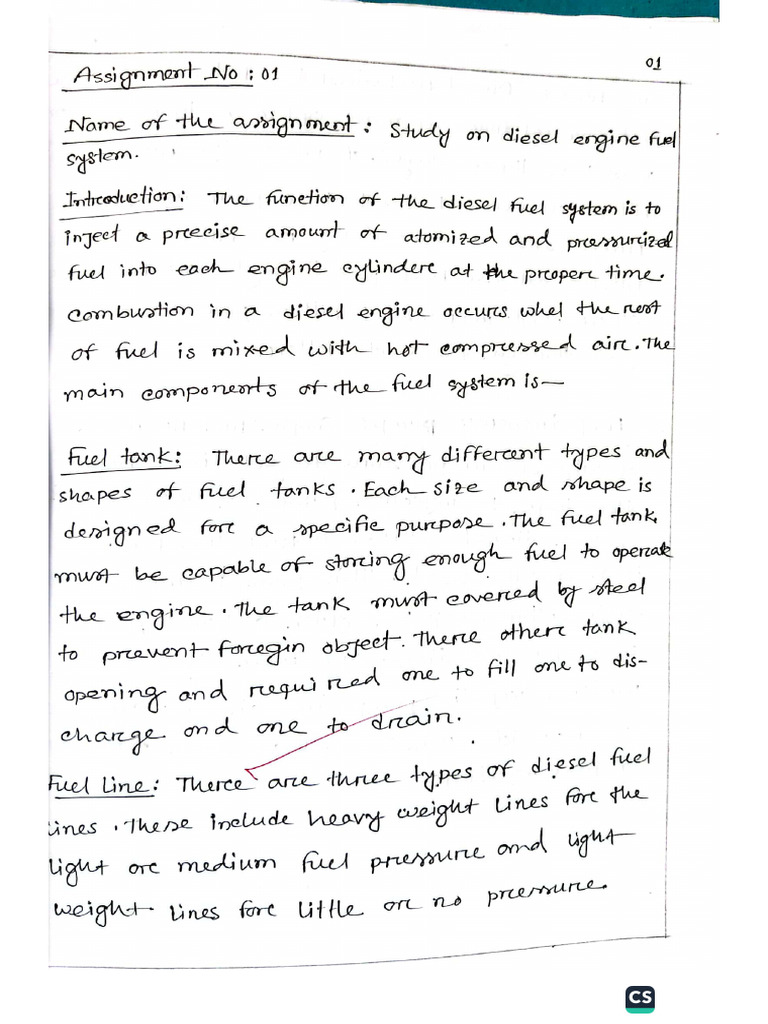 01
Assignment No : 01
Name of the assignment : Study on diesel engine fuel
system.
Introduction: The function of the diesel fuel system is to
inject a precise amount of atomized and pressurized
fuel into each engine cylinder at the proper time.
Combustion in a diesel engine occurs whel the rest
of fuel is mixed with hot compressed air. The
main components of the fuel system is—
Fuel tank: There are many different types and
shapes of fuel tanks. Each size and shape is
designed for a specific purpose. The fuel tank
must be capable of storing enough fuel to operate
the engine. The tank must covered by steel
to prevent foregin object. There other tank
opening and required one to fill one to dis-
charge and one to drain.
Fuel Line: There are three types of diesel fuel
lines. These include heavy weight lines for the
light or medium fuel pressure and light
weight lines for little or no pressure.
CS